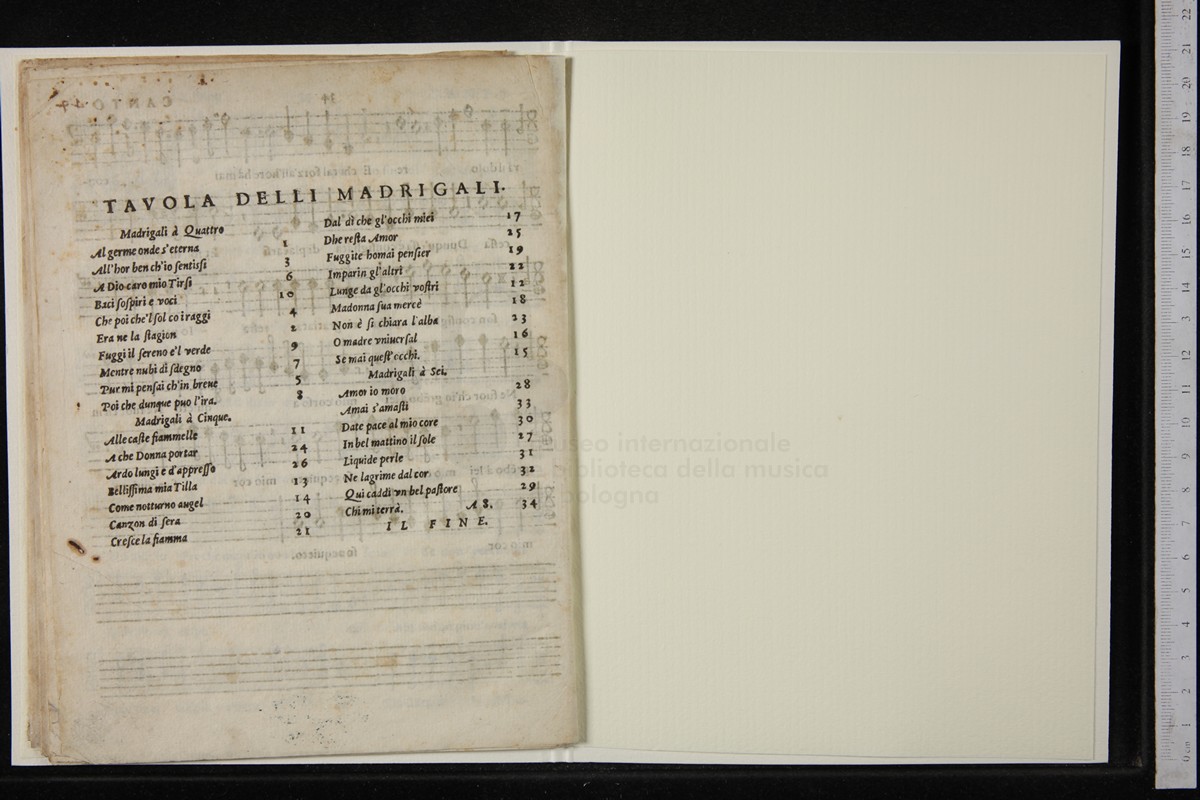 TAVOLA DELLI MADRIGALI.
Madrigali à Quattro
Al germe onde s'eterna 1
All'hor ben ch'io sentissi 3
A Dio caro mio Tirsi 6
Baci sospiri e voci 10
Che poi che'l sol co i raggi 4
Era ne la stagion 2
Fuggi il sereno e'l verde 9
Mentre nubi di sdegno 7
Pur mi pensai ch'in breue 5
Poi che dunque puo l'ira. 8
Madrigali à Cinque.
Alle caste fiammelle 11
A che Donna portar 24
Ardo lungi e d'appresso 26
Bellissima mia Tilla 13
Come notturno augel 14
Canzon di sera 20
Cresce la fiamma 21
Dal dì che gl'occhi miei 17
Dhe resta Amor 25
Fuggite homai pensier 19
Imparin gl'altri 22
Lunge da gl'occhi vostri 12
Madonna sua mercè 18
Non è si chiara l'alba 23
O madre vniuersal 16
Se mai quest'occhi. 15
Madrigali à Sei.
Amor io moro 28
Amai s'amasti 33
Date pace al mio core 30
In bel mattino il sole 27
Liquide perle 31
Ne lagrime dal cor 32
Qui caddi vn bel pastore 29
Chi mi terrà. A 8. 34
IL FINE.
museo internazionale
biblioteca della musica
bologna